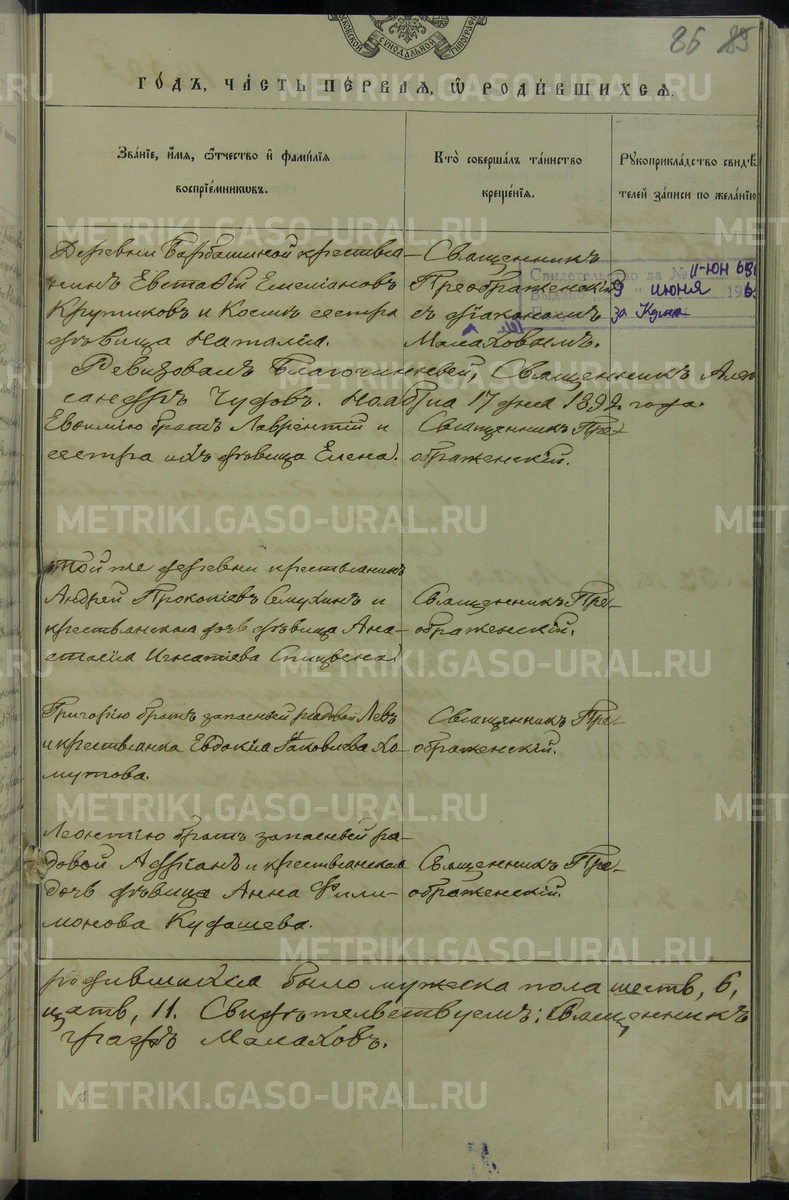 86 85
МОСКОВСКОЙ СѴНОДАЛЬНОЙ ТИПОГРАФІИ
ГО́ДЪ, ЧА́СТЬ ПЕ́РВАѦ, Ѡ҆ РОДИ́ВШИХСѦ.
Зва́нїе, и҆́мѧ, ѻ҆́тчество и҆ фами́лїѧ воспрїе́мникѡвъ.
Кто̀ соверша́лъ та́инство креще́нїѧ.
Рꙋкоприкла́дство свидѣ́телей за́писи по жела́нїю
Деревни Барбашиной крестья-
нинъ Евставій Емеліановъ
Крутиковъ и Космы сестра
дѣвица Наталія.
Священникъ
Преображенскій
съ діакономъ
Малаховымъ.
Свидетельство за №
11-ЮН 63
Выдано 9 июня 196
за
Ревизовалъ Благочинный, Священникъ Алек-
сандръ Чудовъ. Ноября 17 дня 1892 года.
Евѳимію братъ Лаврентій и
сестра ихъ дѣвица Елена.
Священникъ Пре-
ображенскій.
Той же деревни крестьянинъ
Андрей Прокопіевъ Семухинъ и
крестьянская дочь дѣвица Ана-
стасія Игнатіева
Священникъ Пре-
ображенскій.
Григорію братъ запасный рядовой Левъ
и крестьянка Евдокія Іаковлева Хо-
мутова.
Священникъ Пре-
ображенскій.
Леонтію братъ запасный ря-
довой Адріанъ и крестьянская
дочь дѣвица Анна Фили-
монова Кудашева.
Священникъ Пре-
ображенскій.
родившихся было мужеска пола шесть, 6,
цать, 11. Свидѣтельствуемъ: Священникъ
Малаховъ.
METRIKI.GASO-URAL.RU